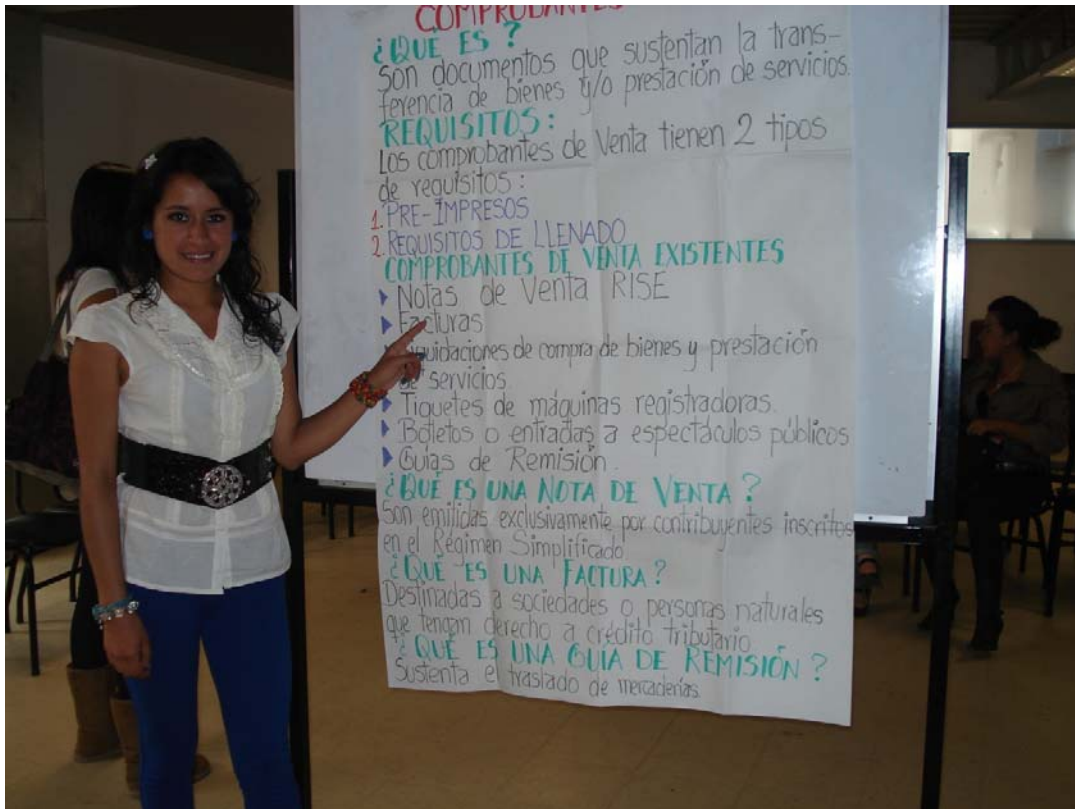 COMPROBANTES
¿QUÉ ES ?
Son documentos que sustentan la trans-
ferencia de bienes y/o prestación de servicios.
REQUISITOS:
Los comprobantes de Venta tienen 2 tipos
de requisitos:
1. PRE-IMPRESOS
2. REQUISITOS DE LLENADO
COMPROBANTES DE VENTA EXISTENTES
Notas de Venta RISE
Facturas
Liquidaciones de compra de bienes y prestación
de servicios.
Tiquetes de máquinas registradoras.
Boletos o entradas a espectáculos públicos
Guías de Remisión.
¿QUÉ ES UNA NOTA DE VENTA ?
Son emitidas exclusivamente por contribuyentes inscritos
en el Régimen Simplificado.
¿QUÉ ES UNA FACTURA ?
Destinadas a sociedades o personas naturales
que tengan derecho a crédito tributario
¿QUÉ ES UNA GUÍA DE REMISIÓN ?
Sustenta el traslado de mercaderías.